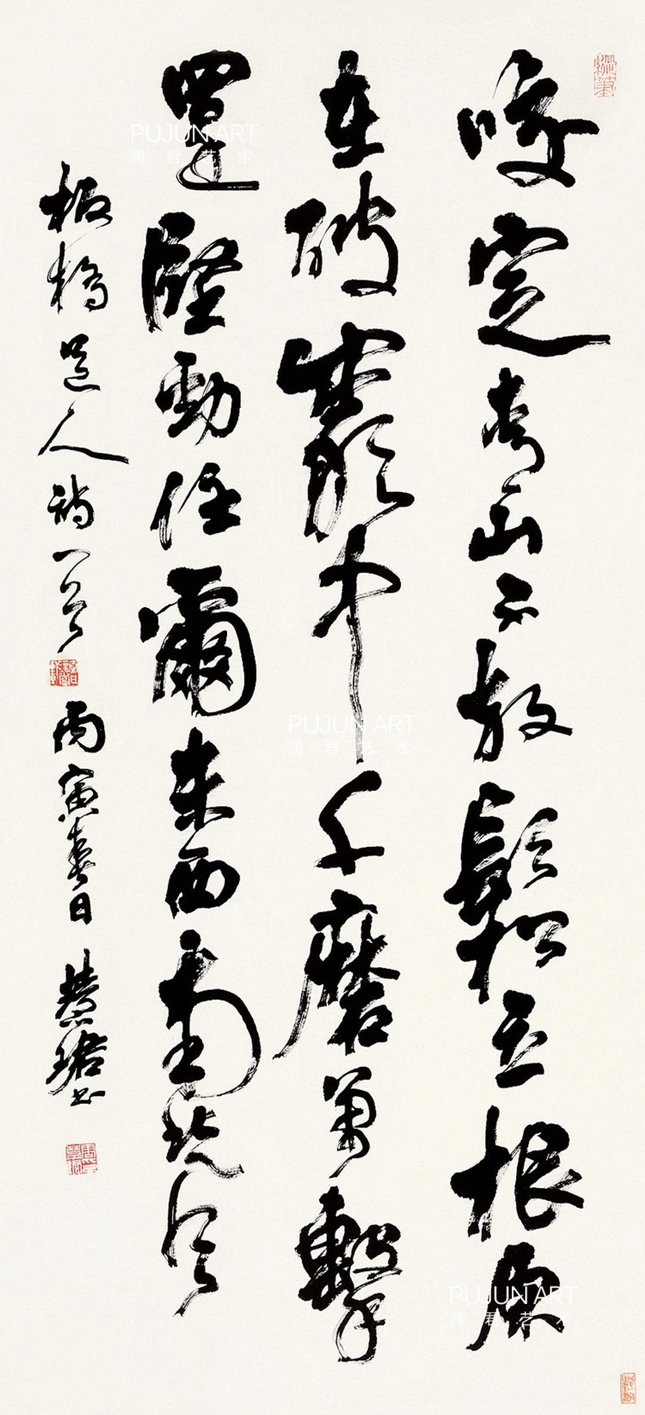 咬定青山不放鬆立根原
在破巖中千磨萬擊
還堅勁任爾東西南北風
板橋道人詩一首 丙寅春日 慧珺書
PUJUN ART
浦君艺术
PUJUN ART
浦君艺术
PUJUN ART
浦君艺术